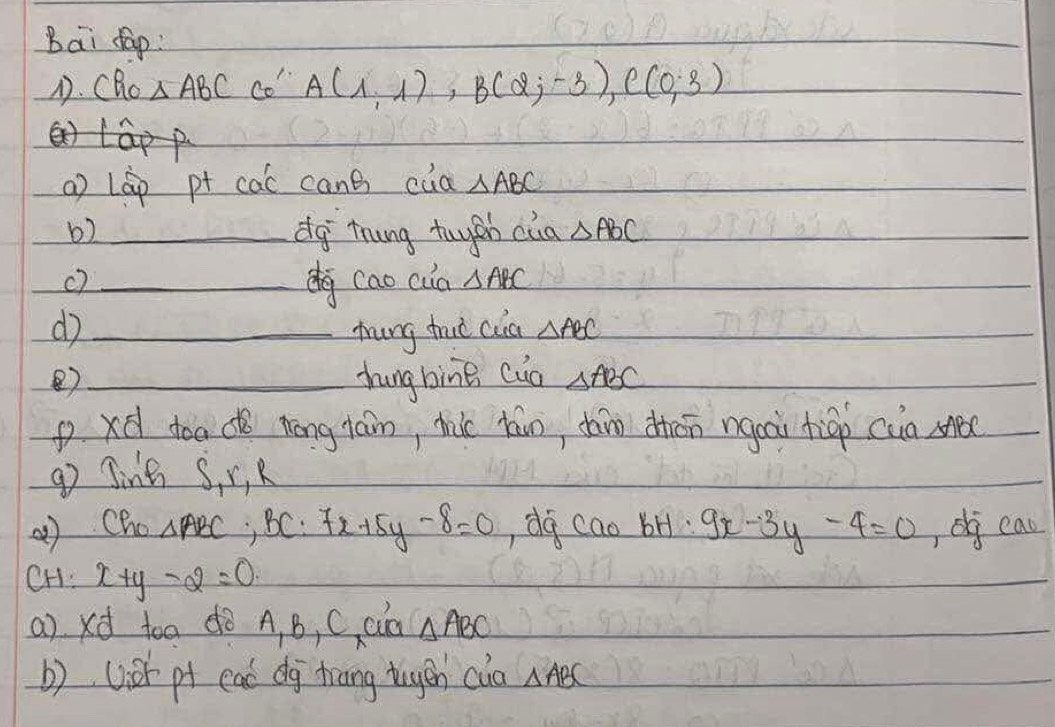 Bài tập:
1). Cho △ABC có A(1; 1); B(2; -3), C(0; 3)
a) Lập p
a) Lập pt các cạnh của △ABC
b) ________ đg trung tuyến của △ABC
c) ________ đg cao của △ABC
d) ________ trung trực của △ABC
e) ________ trung bình của △ABC
f). Xđ toạ độ trọng tâm, trực tâm, tâm đtròn ngoại tiếp của △ABC
g) Tính S, r, R
2) Cho △ABC; BC: 7x+5y-8=0, đg cao BH: 9x-3y-4=0, đg cao
CH: x+y-2=0.
a). Xđ toạ độ A, B, C, của △ABC
b). Viết pt các đg trung tuyến của △ABC